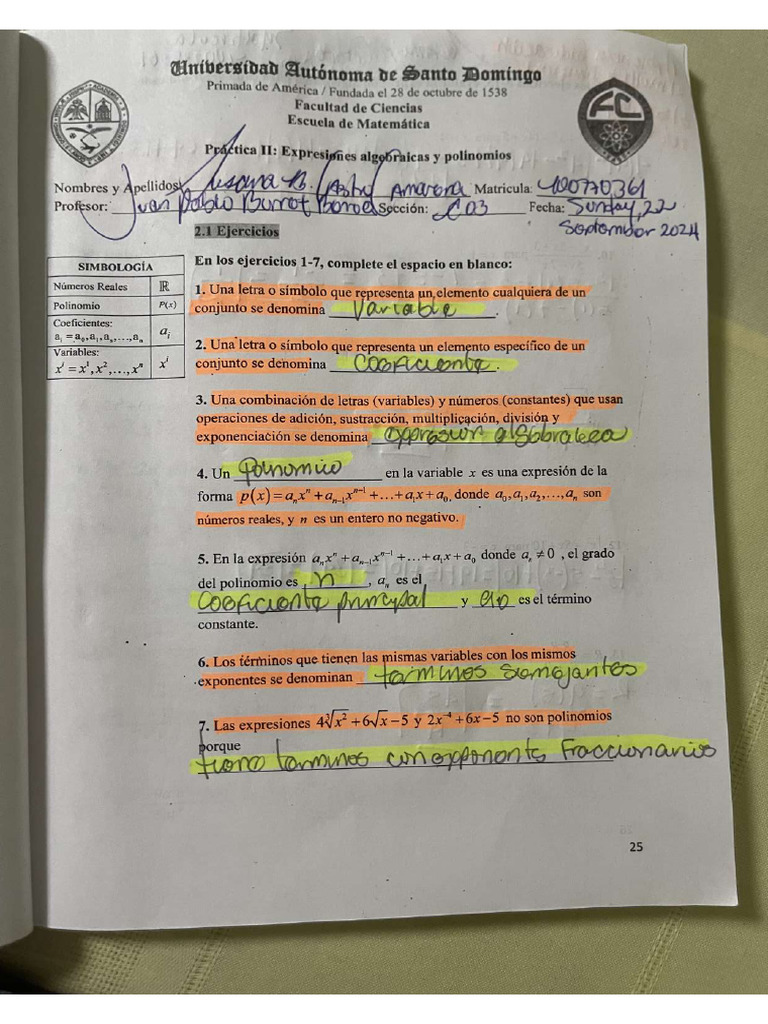 Universidad Autónoma de Santo Domingo
Primada de América / Fundada el 28 de octubre de 1538
Facultad de Ciencias
Escuela de Matemática
Práctica II: Expresiones algebraicas y polinomios
Nombres y Apellidos: Amarera Matricula: 100770361
Profesor: Juan Pablo Burrot Sección: C03 Fecha: Sunday, 22
September 2024
2.1 Ejercicios
SIMBOLOGÍA
Números Reales ℝ
Polinomio P(x)
Coeficientes:
aᵢ = a₀, a₁, a₂, ..., aₙ aᵢ
Variables:
xⁱ = x¹, x², ..., xⁿ xⁱ
En los ejercicios 1-7, complete el espacio en blanco:
1. Una letra o símbolo que representa un elemento cualquiera de un
conjunto se denomina Variable.
2. Una letra o símbolo que representa un elemento específico de un
conjunto se denomina Coeficiente.
3. Una combinación de letras (variables) y números (constantes) que usan
operaciones de adición, sustracción, multiplicación, división y
exponenciación se denomina expresion algebraica
4. Un polinomio en la variable x es una expresión de la
forma p(x) = aₙxⁿ + aₙ₋₁xⁿ⁻¹ + ... + a₁x + a₀, donde a₀, a₁, a₂, ..., aₙ son
números reales, y n es un entero no negativo.
5. En la expresión aₙxⁿ + aₙ₋₁xⁿ⁻¹ + ... + a₁x + a₀ donde aₙ ≠ 0, el grado
del polinomio es n, aₙ es el
Coeficiente principal y es el término
constante.
6. Los términos que tienen las mismas variables con los mismos
exponentes se denominan terminos semejantes
7. Las expresiones 4∛x² + 6√x − 5 y 2x⁻⁴ + 6x − 5 no son polinomios
porque
tiene terminos con exponents Fraccionarios
25